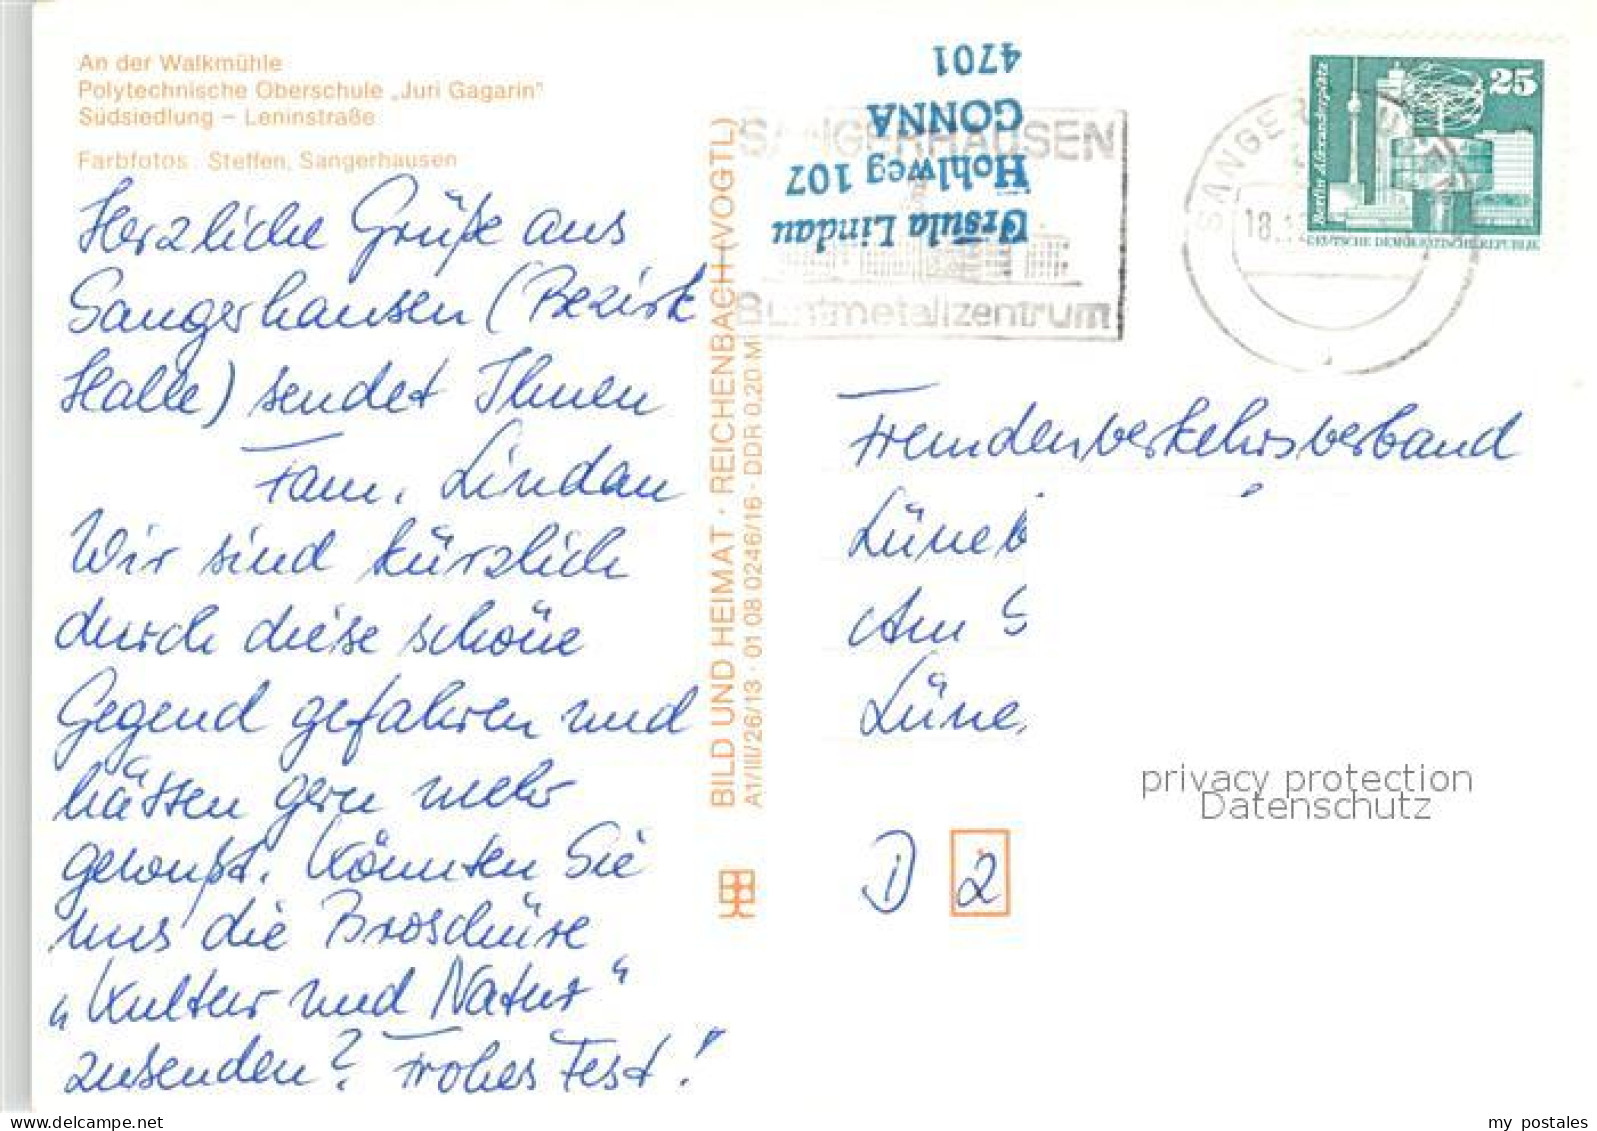 An der Walkmühle
Polytechnische Oberschule „Juri Gagarin"
Südsiedlung – Leninstraße
Farbfotos: Steffen, Sangerhausen
Herzliche Grüße aus
Sangerhausen (Bezirk
Halle) sendet Ihnen
Fam. Lindau
Wir sind kürzlich
durch diese schöne
Gegend gefahren und
hätten gern mehr
gewußt. Könnten Sie
uns die Broschüre
„Kultur und Natur"
zusenden? Frohes Fest!
BILD UND HEIMAT · REICHENBACH (VOGTL)
A1/III/26/13 · 01 08 0246/16 · DDR 0,20 M
Ursula Lindau
Hohlweg 107
GONNA
4701
SANGERHAUSEN
Buntmetallzentrum
SANGERHAUSEN
18.
25
Berlin Alexanderplatz
DEUTSCHE DEMOKRATISCHE REPUBLIK
Fremdenverkehrsverband
Lüneb
Am S
Lüne
privacy protection
Datenschutz
D 2
www.delcampe.net
my_postales